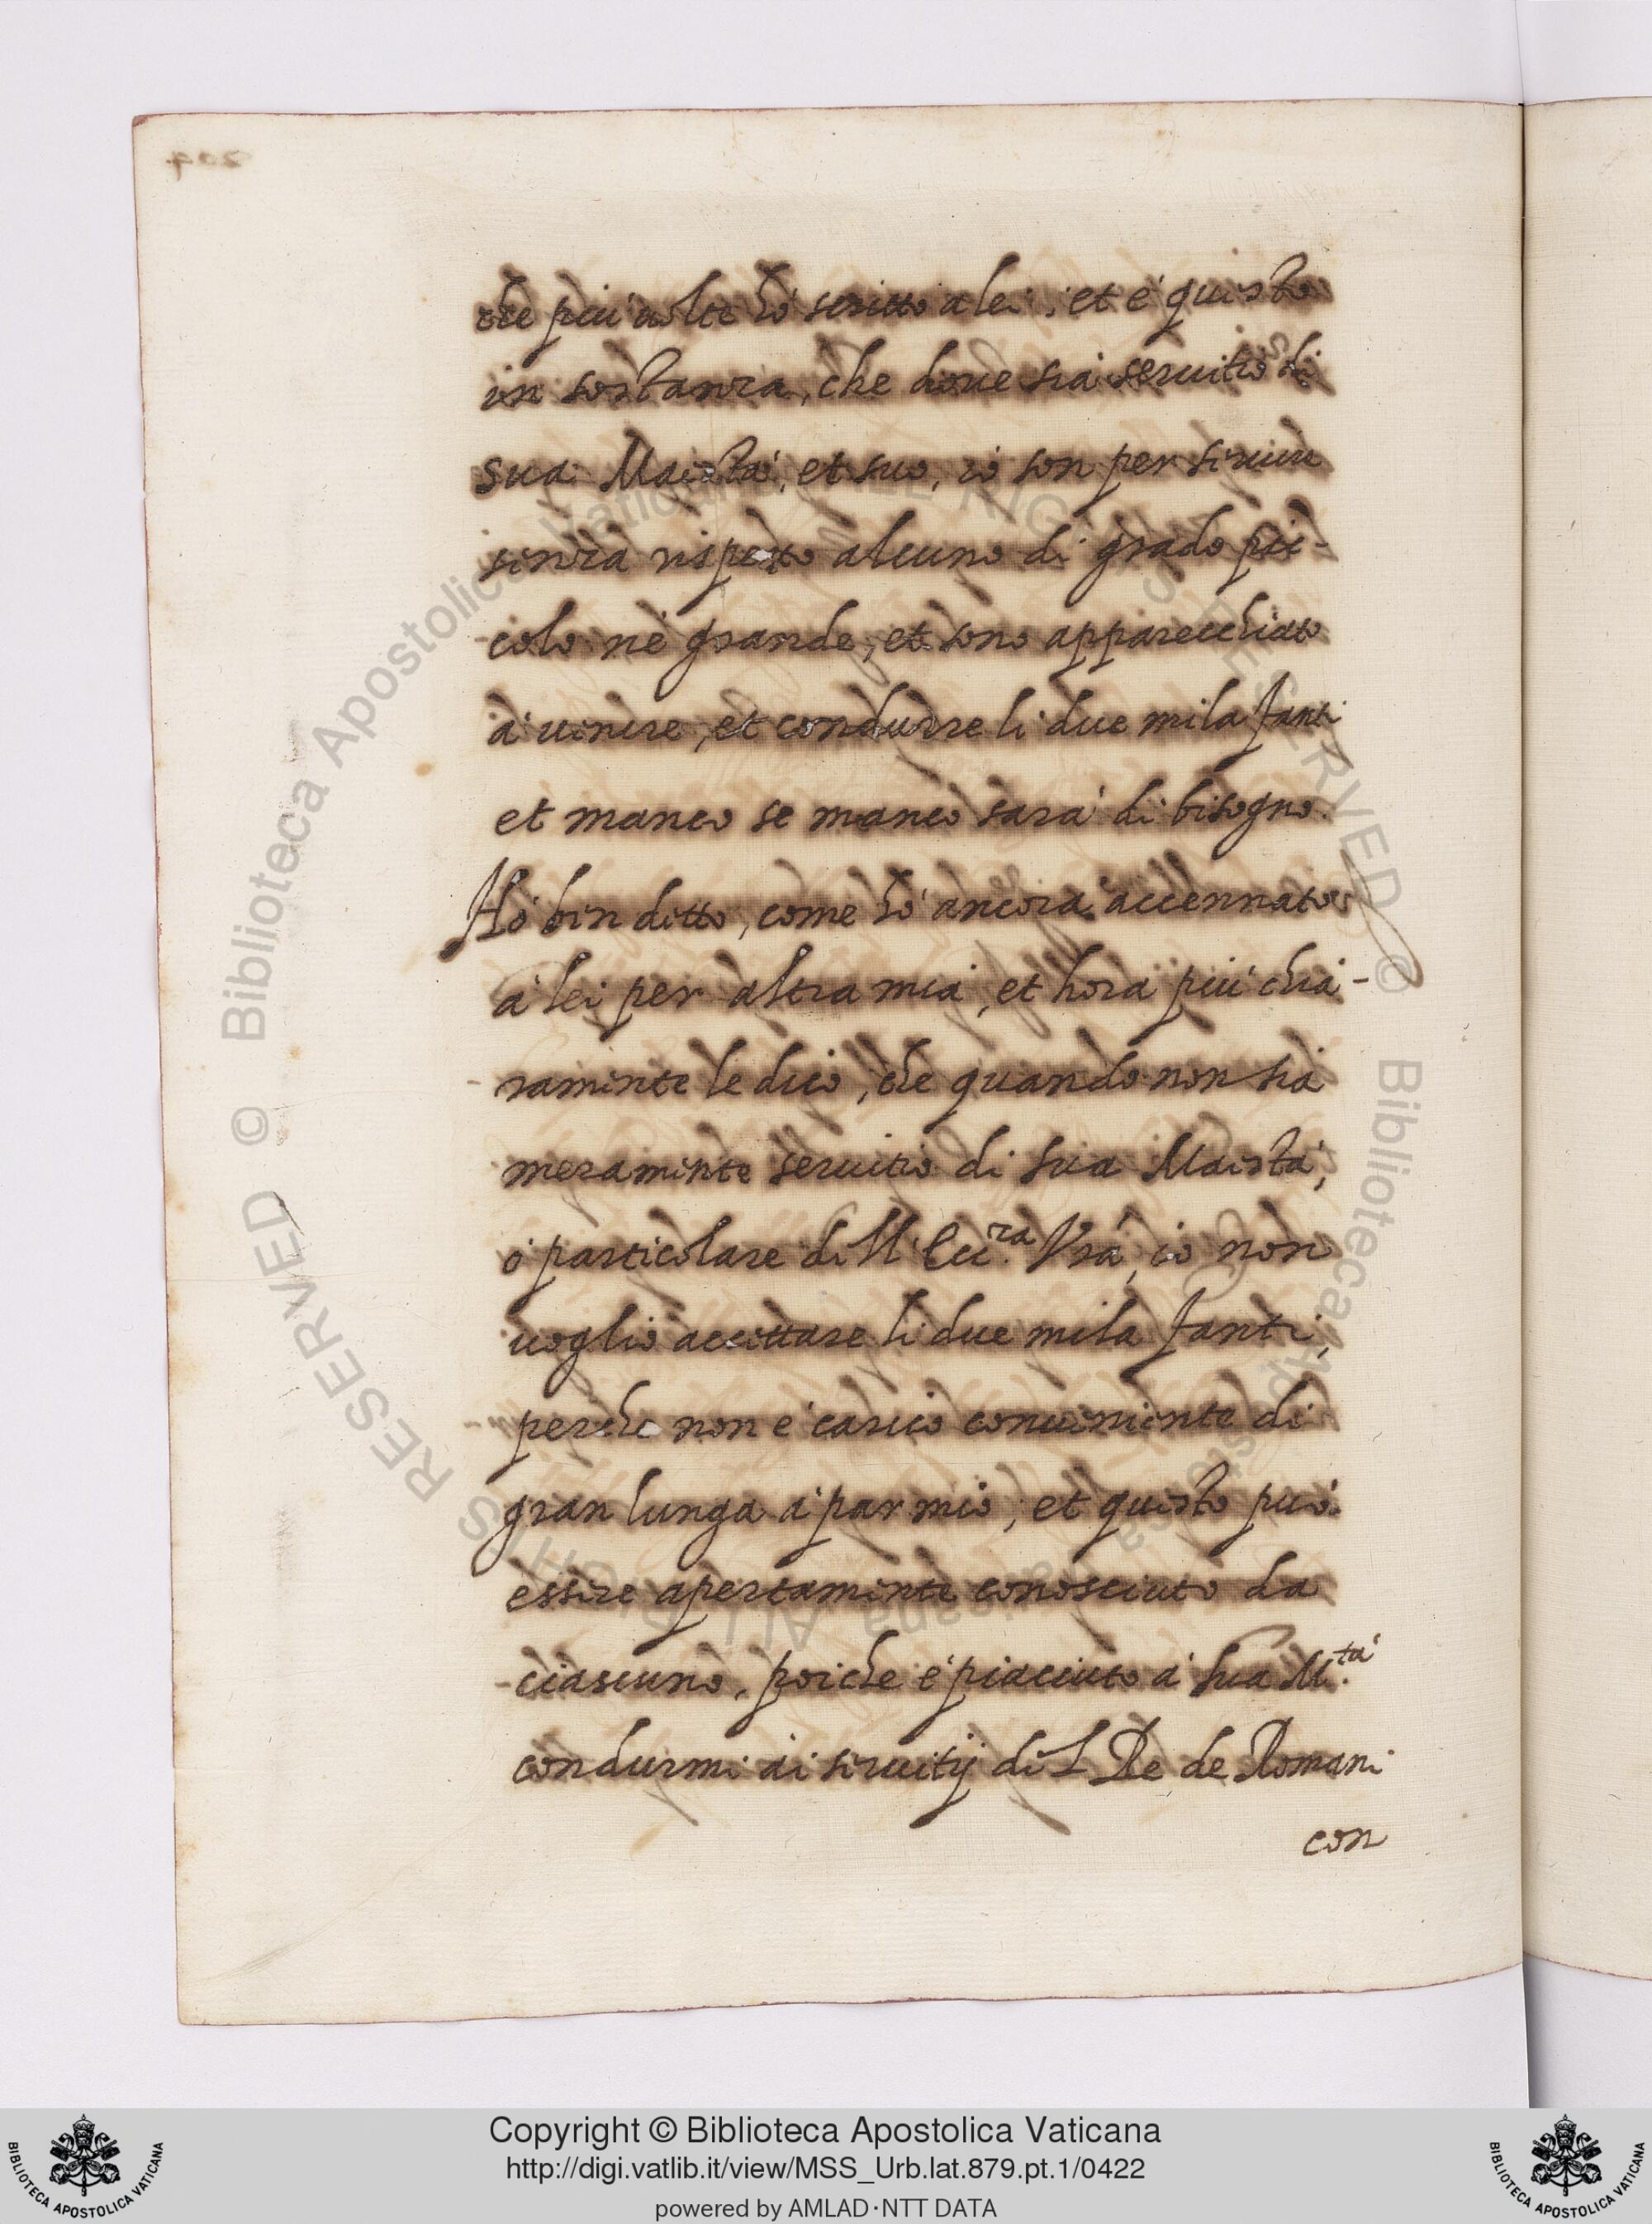 che più uolte hò scritto a lei, et è questo
in sostanza, che doue sia seruitio di
sua Maestà, et suo, io son per seruir
senza rispetto alcuno di grado pic-
colo nè grande, et sono apparecchiato
à uenire, et condurre li due mila fanti
et manco se manco sarà di bisogno.
Hò ben detto, come hò ancora accennato
à lei per altra mia, et hora più chia-
ramente le dico, che quando non sia
meramente seruitio di sua Maestà,
ò particolare di V. Ecc.ra Vra, io non
uoglio accettare li due mila fanti,
perche non è carico conueniente di
gran lunga à par mio, et questo può
essere apertamente conosciuto da
ciascuno, poiche è piaciuto à sua M.tà
condurmi ai seruitij di L Re de Romani
con
Copyright © Biblioteca Apostolica Vaticana
http://digi.vatlib.it/view/MSS_Urb.lat.879.pt.1/0422
powered by AMLAD·NTT DATA
BIBLIOTECA APOSTOLICA VATICANA
BIBLIOTECA APOSTOLICA VATICANA